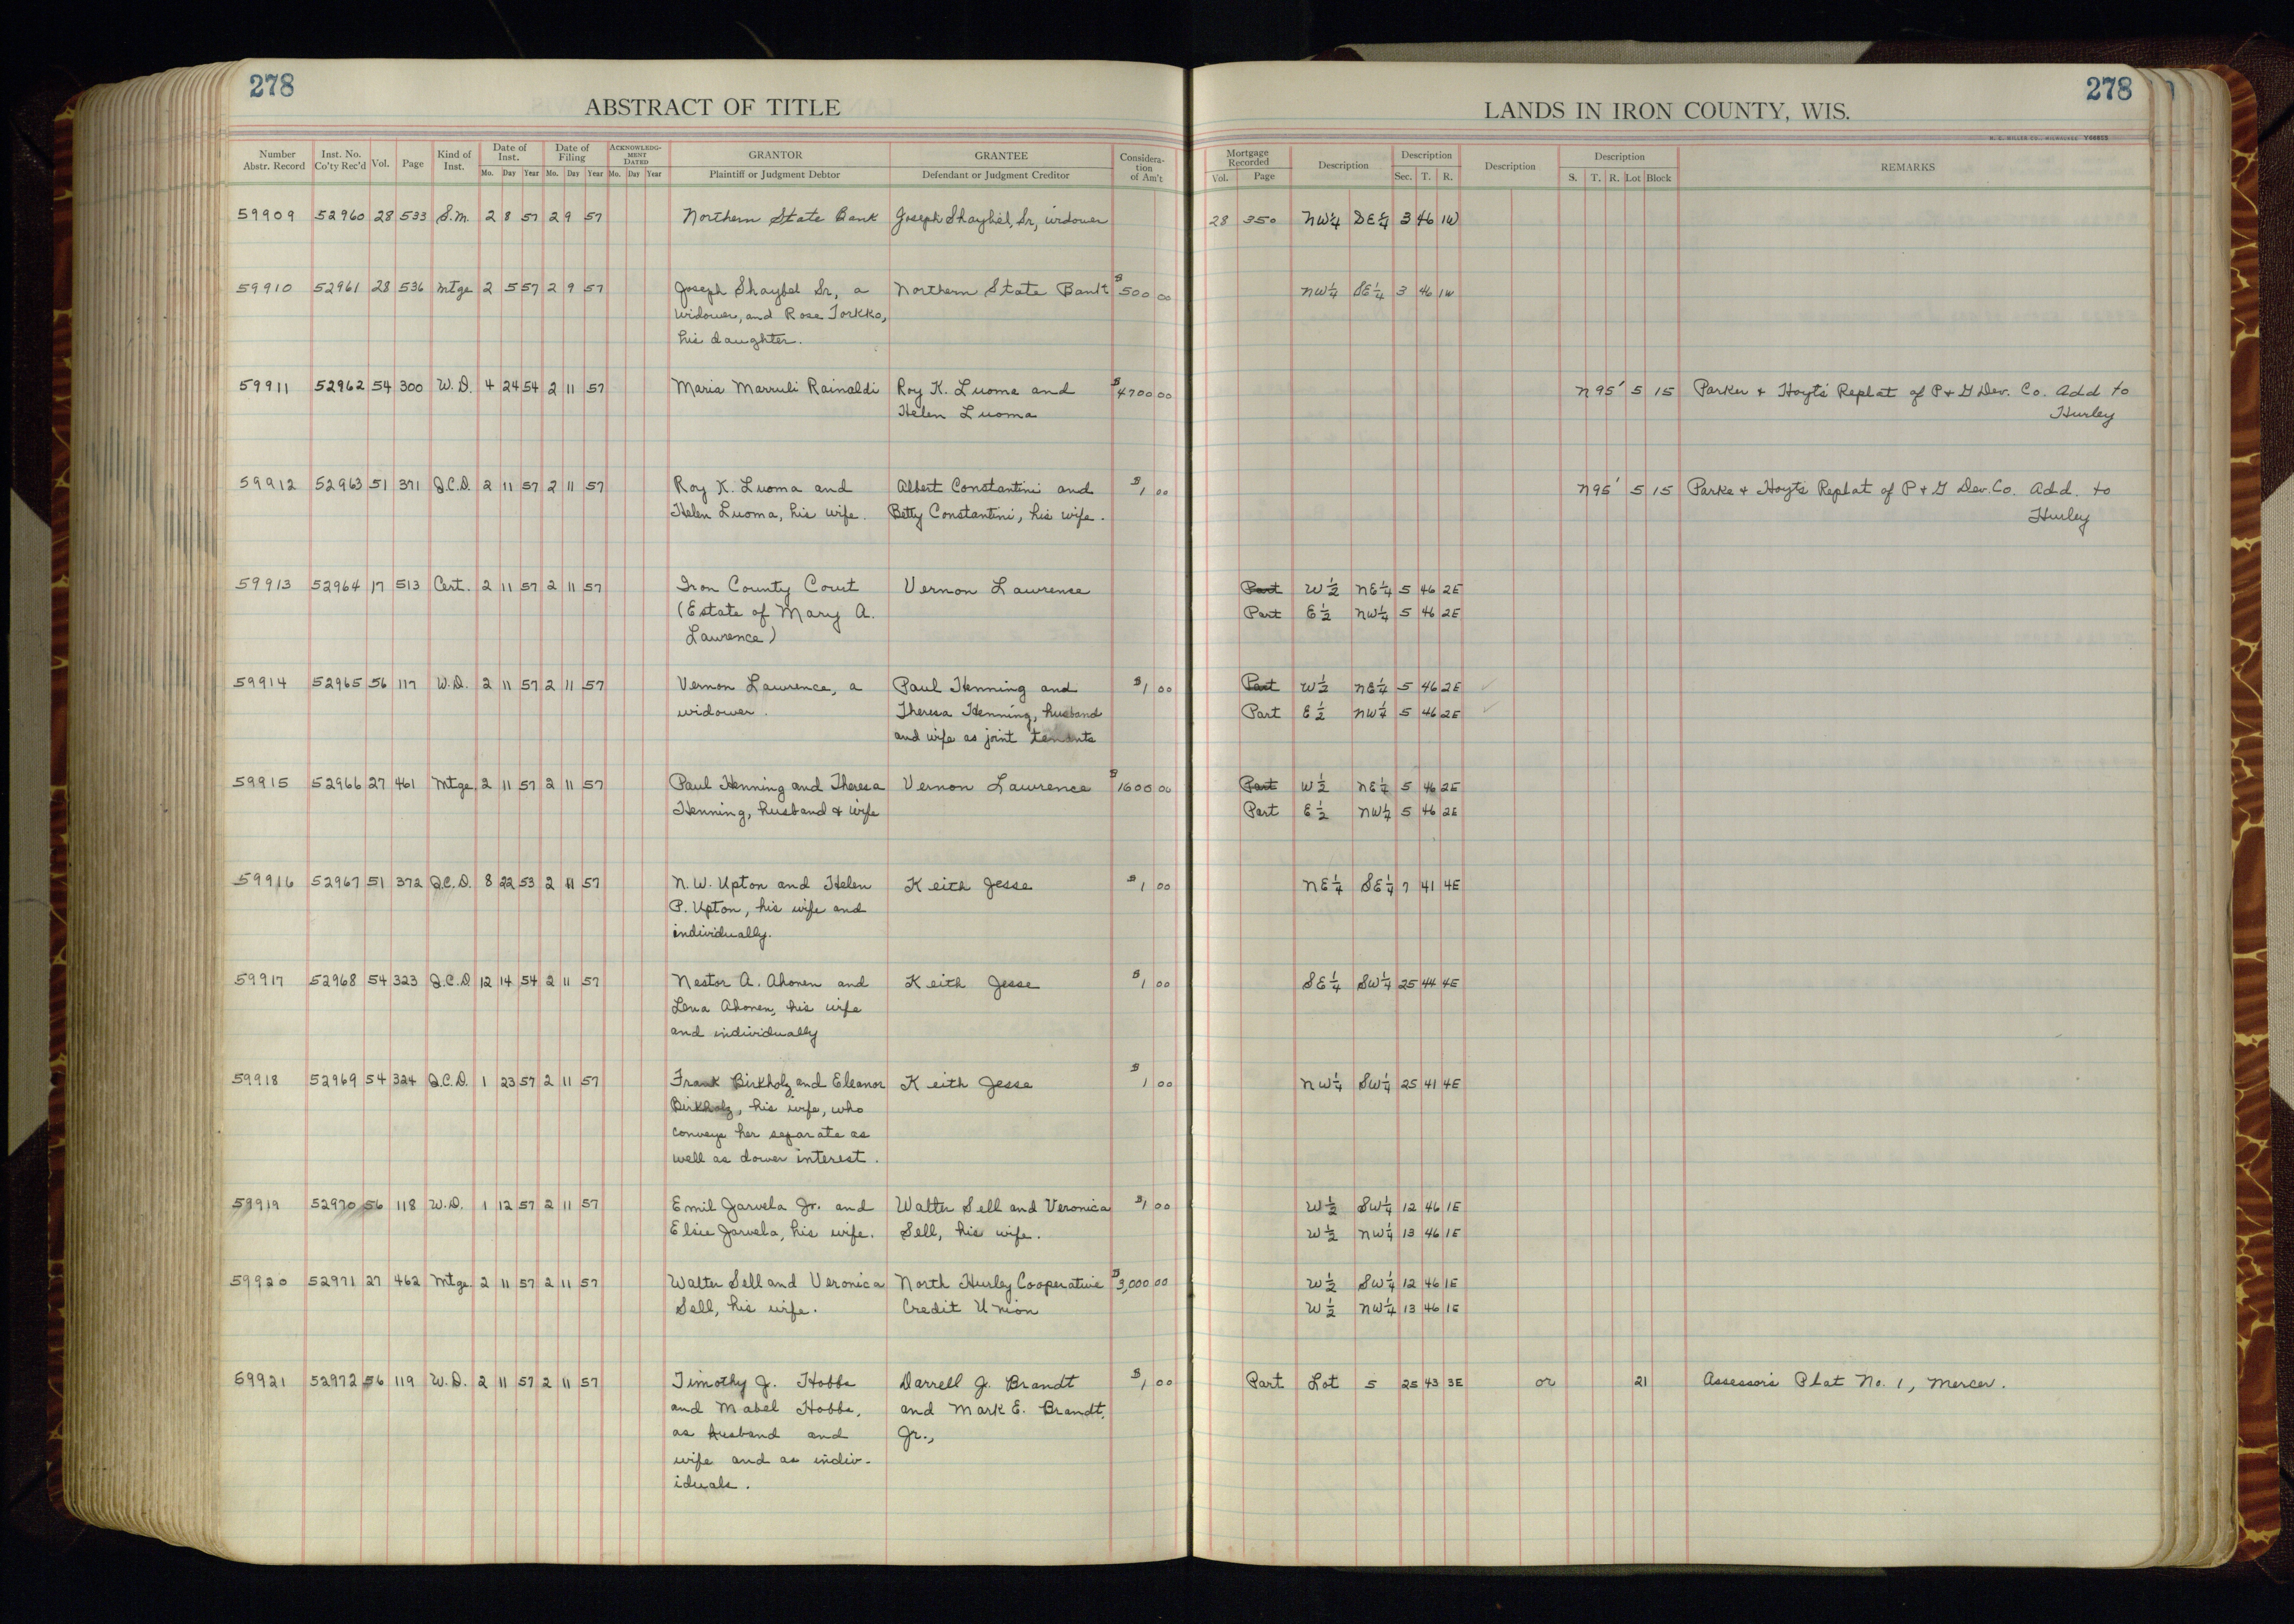 278
ABSTRACT OF TITLE
Number Abstr. Record Inst. No. Co'ty Rec'd Vol. Page Kind of Inst. Date of Inst. Mo. Day Year Date of Filing Mo. Day Year ACKNOWLEDGMENT DATED Mo. Day Year GRANTOR Plaintiff or Judgment Debtor GRANTEE Defendant or Judgment Creditor Consideration of Am't
59909 52960 28 533 S.M. 2 8 57 2 9 57 Northern State Bank Joseph Shaybel, Sr, widower
59910 52961 28 536 Mtge 2 5 57 2 9 57 Joseph Shaybel Sr, a Northern State Bank $500 00
widower, and Rose Torkko,
his daughter.
59911 52962 54 300 W.D. 4 24 54 2 11 57 Maria Marruli Rainaldi Roy K. Luoma and $4700 00
Helen Luoma
59912 52963 51 371 Q.C.D. 2 11 57 2 11 57 Roy K. Luoma and Albert Constantini and $1 00
Helen Luoma, his wife. Betty Constantini, his wife.
59913 52964 17 513 Cert. 2 11 57 2 11 57 Iron County Court Vernon Lawrence
(Estate of Mary A.
Lawrence)
59914 52965 56 117 W.D. 2 11 57 2 11 57 Vernon Lawrence, a Paul Henning and $1 00
widower. Theresa Henning, husband
and wife as joint tenants
59915 52966 27 461 Mtge. 2 11 57 2 11 57 Paul Henning and Theresa Vernon Lawrence $1600 00
Henning, husband & wife
59916 52967 51 372 Q.C.D. 8 22 53 2 11 57 N.W. Upton and Helen Keith Jesse $1 00
P. Upton, his wife and
individually.
59917 52968 54 323 Q.C.D 12 14 54 2 11 57 Nestor A. Ahonen and Keith Jesse $1 00
Lena Ahonen, his wife
and individually
59918 52969 54 324 Q.C.D. 1 23 57 2 11 57 Frank Birkholz and Eleanor Keith Jesse $1 00
Birkholz, his wife, who
conveys her separate as
well as dower interest.
59919 52970 56 118 W.D. 1 12 57 2 11 57 Emil Jarvela Jr. and Walter Sell and Veronica $1 00
Elsie Jarvela, his wife. Sell, his wife.
59920 52971 27 462 Mtge. 2 11 57 2 11 57 Walter Sell and Veronica North Hurley Cooperative $3,000 00
Sell, his wife. Credit Union
59921 52972 56 119 W.D. 2 11 57 2 11 57 Timothy J. Hobbs Darrell J. Brandt $1 00
and Mabel Hobbs, and Mark E. Brandt,
as husband and Jr.,
wife and as indiv-
iduals.
278
LANDS IN IRON COUNTY, WIS.
H. C. MILLER CO., MILWAUKEE
Mortgage Recorded Vol. Page Description Description Sec. T. R. Description Description S. T. R. Lot Block REMARKS
28 350 NW¼ SE¼ 3 46 1W
NW¼ SE¼ 3 46 1W
N95' 5 15 Parker & Hoyt's Replat of P & G Dev. Co. Add to
Hurley
N95' 5 15 Parke & Hoyt's Replat of P & G Dev. Co. Add. to
Hurley
Part W½ NE¼ 5 46 2E
Part E½ NW¼ 5 46 2E
Part W½ NE¼ 5 46 2E ✓
Part E½ NW¼ 5 46 2E ✓
Part W½ NE¼ 5 46 2E
Part E½ NW¼ 5 46 2E
NE¼ SE¼ 7 41 4E
SE¼ SW¼ 25 44 4E
NW¼ SW¼ 25 41 4E
W½ SW¼ 12 46 1E
W½ NW¼ 13 46 1E
W½ SW¼ 12 46 1E
W½ NW¼ 13 46 1E
Part Lot 5 25 43 3E or 21 Assessor's Plat No. 1, Mercer.